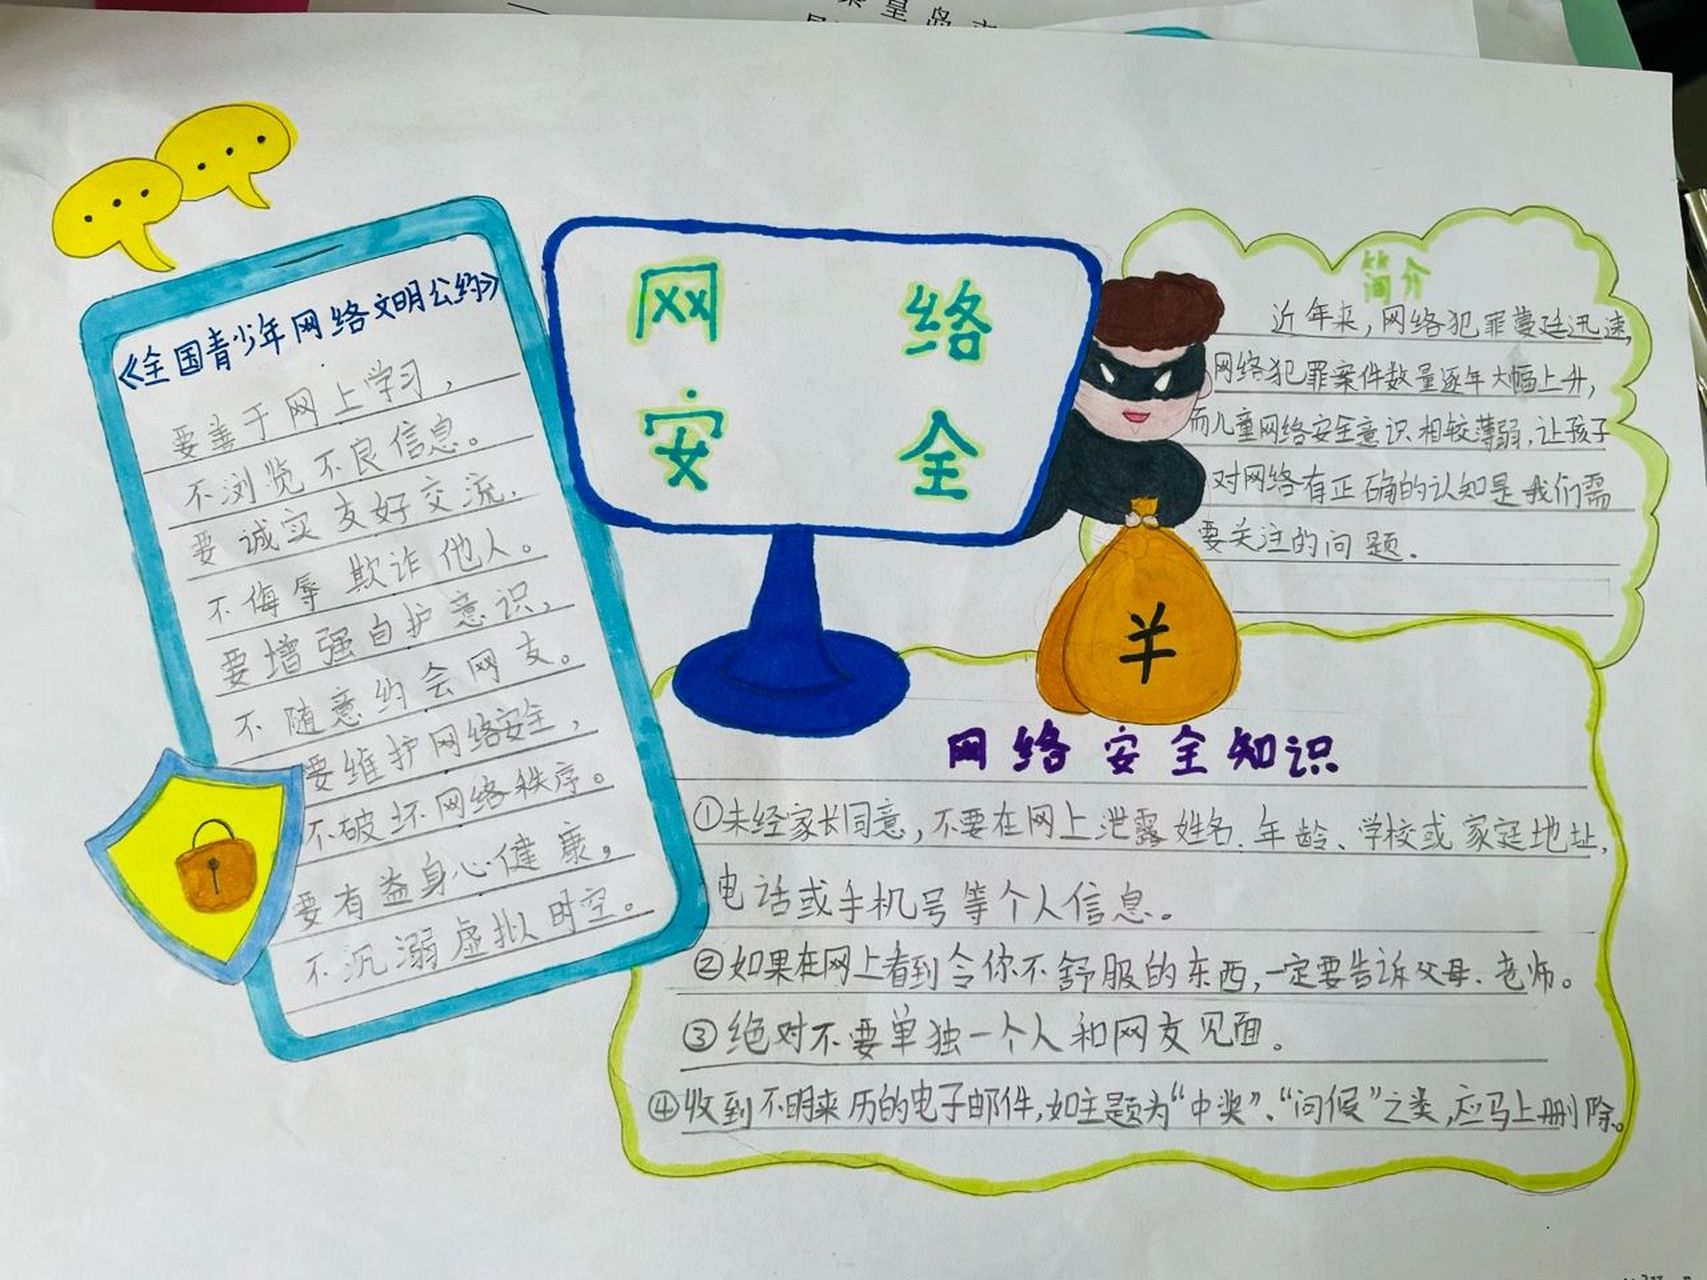 《全国青少年网络文明公约》
要善于网上学习，
不浏览不良信息。
要诚实友好交流，
不侮辱欺诈他人。
要增强自护意识，
不随意约会网友。
要维护网络安全，
不破坏网络秩序。
要有益身心健康，
不沉溺虚拟时空。
网络
安全
简介
近年来，网络犯罪蔓延迅速，
网络犯罪案件数量逐年大幅上升，
而儿童网络安全意识相较薄弱，让孩子
对网络有正确的认知是我们需
要关注的问题。
羊
网络安全知识
①未经家长同意，不要在网上泄露姓名、年龄、学校或家庭地址，
电话或手机号等个人信息。
②如果在网上看到令你不舒服的东西，一定要告诉父母、老师。
③绝对不要单独一个人和网友见面。
④收到不明来历的电子邮件，如主题为“中奖”、“问候”之类，应马上删除。